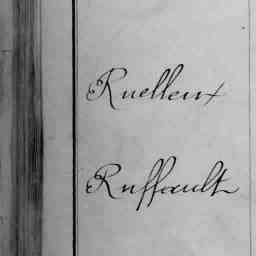 Ruelleux
Ruffault